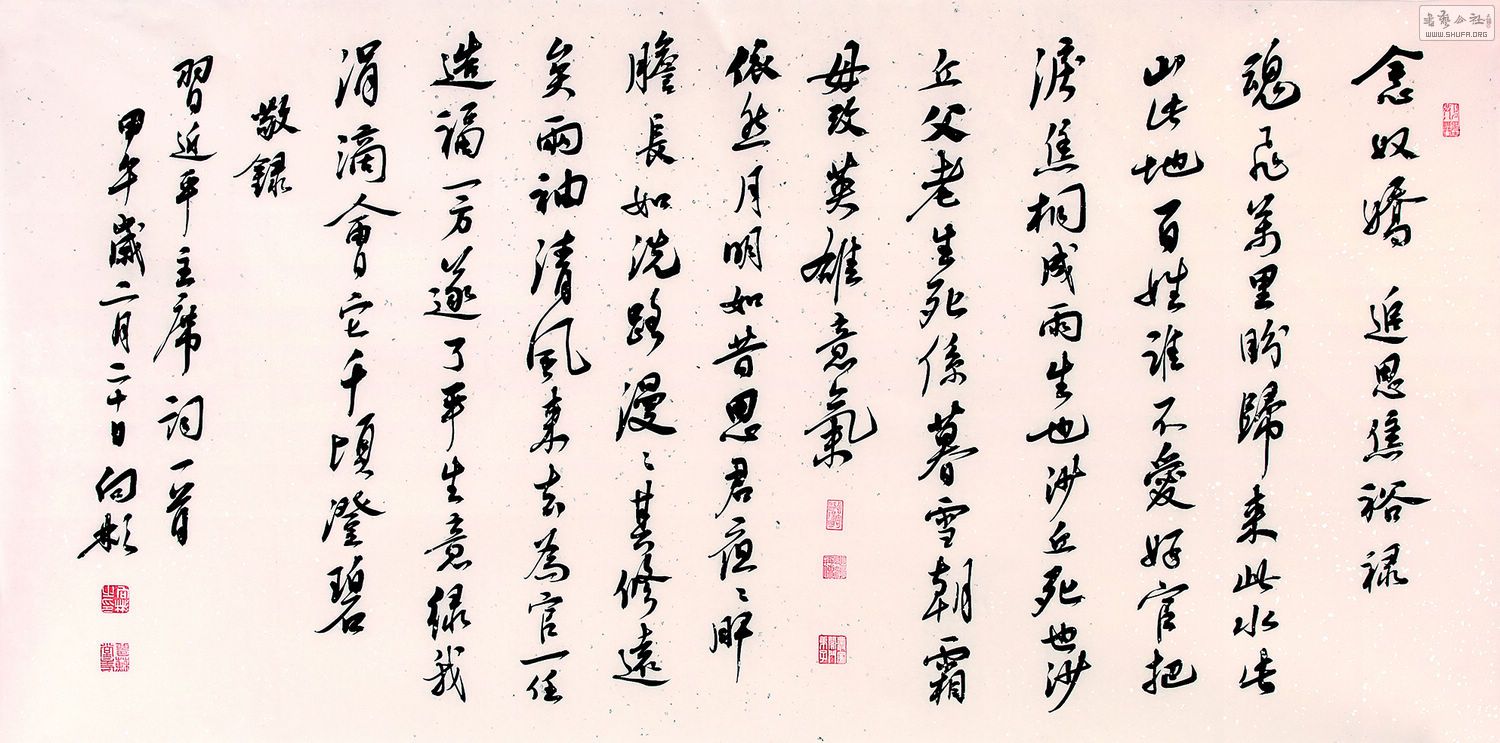 念奴嬌 追思焦裕禄
魂飛萬里盼歸来此水此
山此地百姓誰不愛好官把
淚焦桐成雨生也沙丘死也沙
丘父老生死係暮雪朝霜
毋改英雄意氣
依然月明如昔思君夜〻肝
膽長如洗路漫〻其修遠
矣兩袖清風来去為官一任
造福一方遂了平生意緑我
涓滴會它千頃澄碧
敬録
習近平主席詞一首
甲午歲二月二十日向彬
書藝公社
WWW.SHUFA.ORG